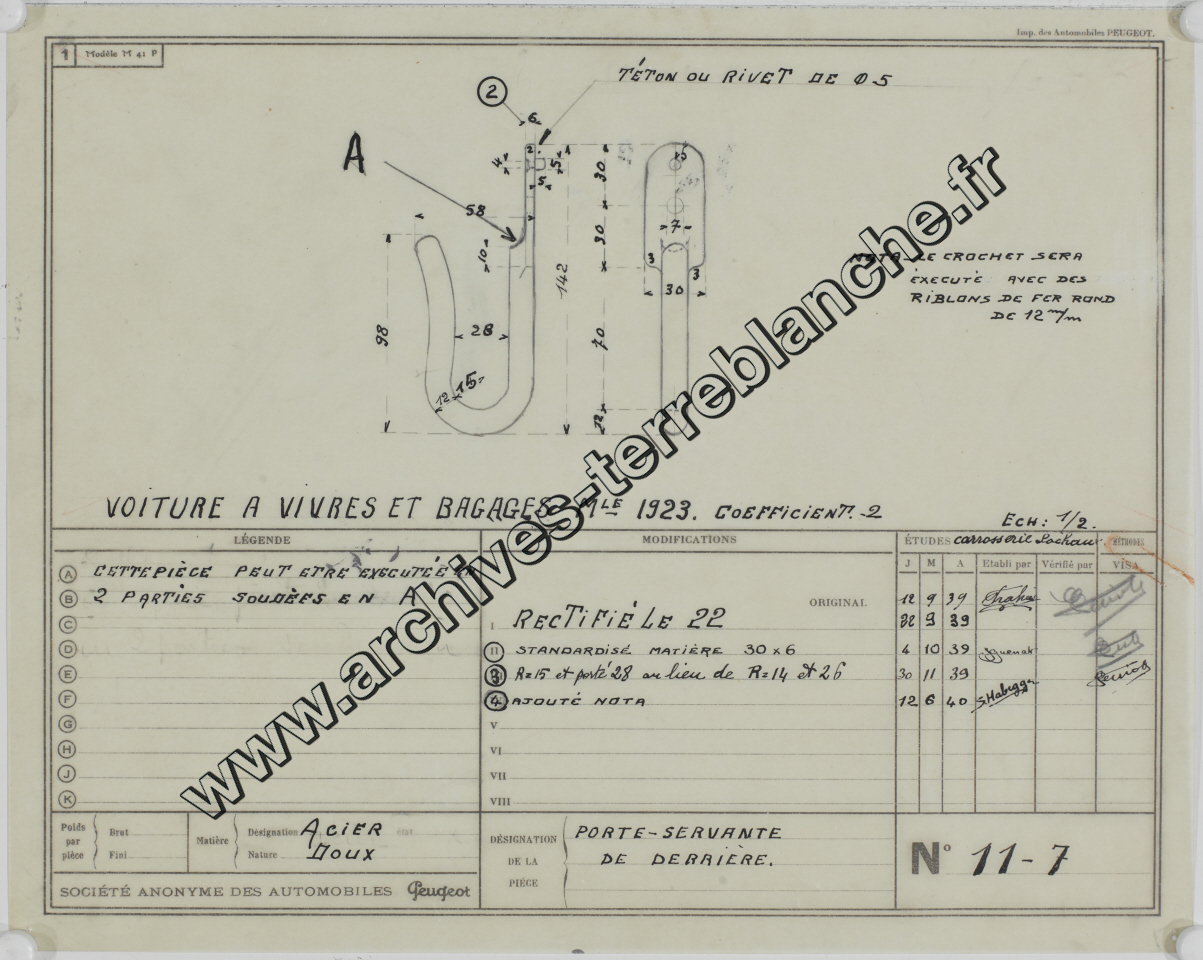 Imp. des Automobiles PEUGEOT.
1 Modèle M 41 P
TÉTON OU RIVET DE Ø 5
2
6
A
2
4
5
5
30
58
10
30
7
3
3
30
142
98
28
70
12
15
12
LE CROCHET SERA
ÉXECUTÉ AVEC DES
RIBLONS DE FER ROND
DE 12 m/m
www.archives-terreblanche.fr
VOITURE A VIVRES ET BAGAGES MLE 1923. COEFFICIENT.-2
ECH: 1/2.
LÉGENDE
A CETTE PIÈCE PEUT ETRE EXECUTÉE
B 2 PARTIES SOUDÈES EN A
C
D
E
F
G
H
J
K
MODIFICATIONS
ORIGINAL
I RECTIFIÉ LE 22
II STANDARDISÉ MATIÈRE 30 x 6
3 R=15 et porté 28 au lieu de R=14 et 26
4 AJOUTÉ NOTA
V
VI
VII
VIII
ÉTUDES carrosserie Sochaux MÉTHODES
J M A Etabli par Vérifié par VISA
12 9 39
22 9 39
4 10 39
30 11 39
12 6 40
Poids par pièce
Brut
Fini
Matière
Désignation ACIER état
Nature DOUX
SOCIÉTÉ ANONYME DES AUTOMOBILES Peugeot
DÉSIGNATION DE LA PIÉCE
PORTE-SERVANTE
DE DERRIÈRE.
N° 11-7